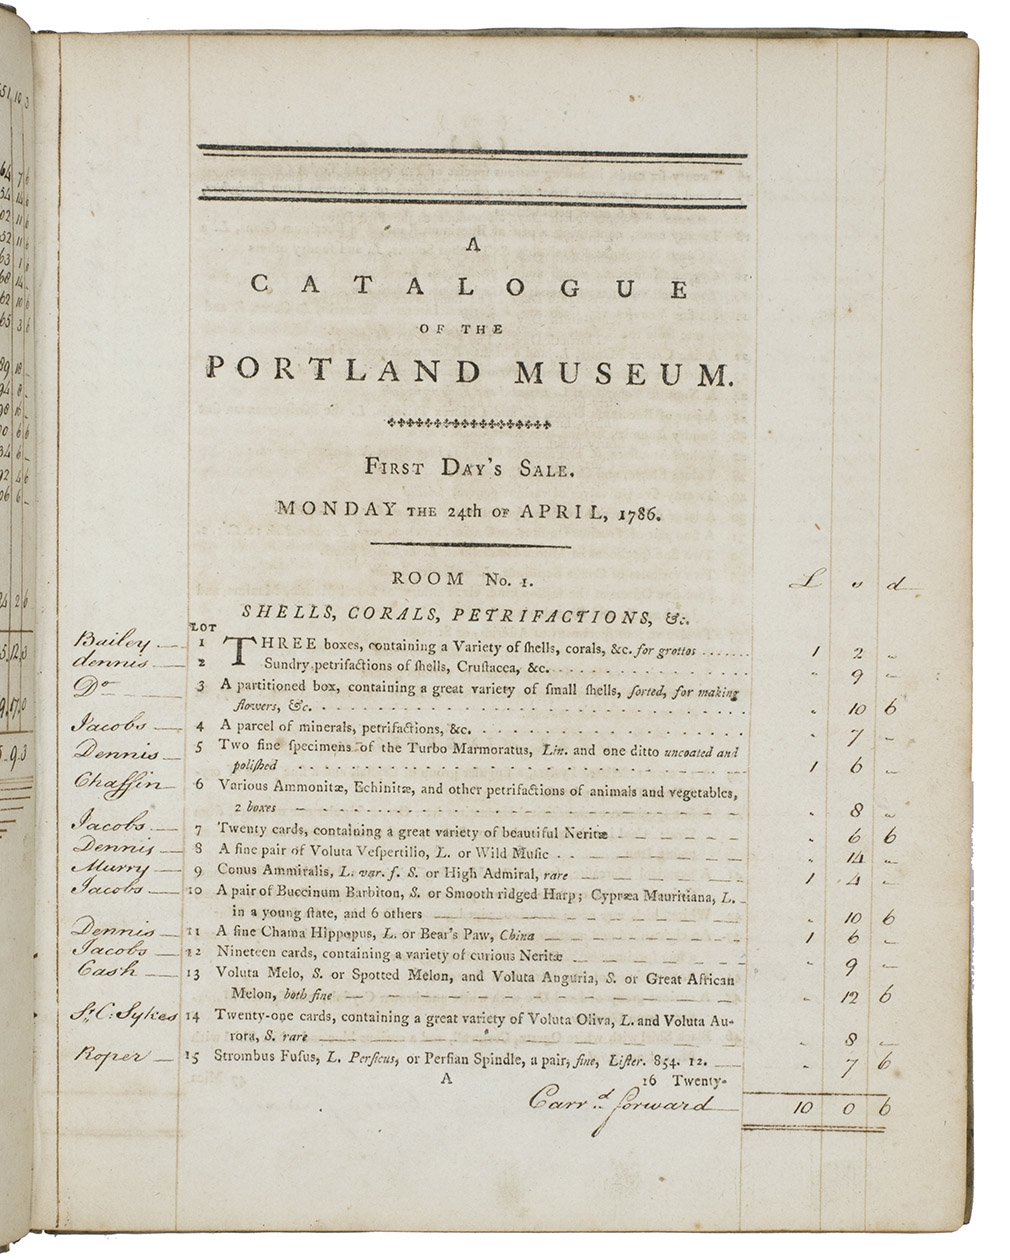 A
CATALOGUE
OF THE
PORTLAND MUSEUM.
FIRST DAY'S SALE.
MONDAY THE 24th OF APRIL, 1786.
ROOM No. 1.
L s d
SHELLS, CORALS, PETRIFACTIONS, &c.
LOT
Bailey 1 THREE boxes, containing a Variety of ſhells, corals, &c. for grottos ...... 1 2 "
dennis 2 Sundry petrifactions of ſhells, Cruſtacea, &c. " 9 "
Do 3 A partitioned box, containing a great variety of ſmall ſhells, ſorted, for making
flowers, &c. " 10 6
Jacobs 4 A parcel of minerals, petrifactions, &c. " 7 "
Dennis 5 Two fine ſpecimens of the Turbo Marmoratus, Lin. and one ditto uncoated and
poliſhed 1 6 "
Chaffin 6 Various Ammonitæ, Echinitæ, and other petrifactions of animals and vegetables,
2 boxes " 8 "
Jacobs 7 Twenty cards, containing a great variety of beautiful Neritæ " 6 6
Dennis 8 A fine pair of Voluta Veſpertilio, L. or Wild Muſic " 14 "
Murry 9 Conus Ammiralis, L. var. f. S. or High Admiral, rare 1 4 "
Jacobs 10 A pair of Buccinum Barbiton, S. or Smooth ridged Harp; Cypræa Mauritiana, L.
in a young ſtate, and 6 others " 10 6
Dennis 11 A fine Chama Hippopus, L. or Bear's Paw, China 1 6 "
Jacobs 12 Nineteen cards, containing a variety of curious Neritæ " 9 "
Cash 13 Voluta Melo, S. or Spotted Melon, and Voluta Anguria, S. or Great African
Melon, both fine " 12 6
St. C: Sykes 14 Twenty-one cards, containing a great variety of Voluta Oliva, L. and Voluta Au-
rora, S. rare " 8 "
Roper 15 Strombus Fuſus, L. Perſicus, or Perſian Spindle, a pair, fine, Liſter. 854. 12. " 7 6
A 16 Twenty-
Carrd forward 10 0 6